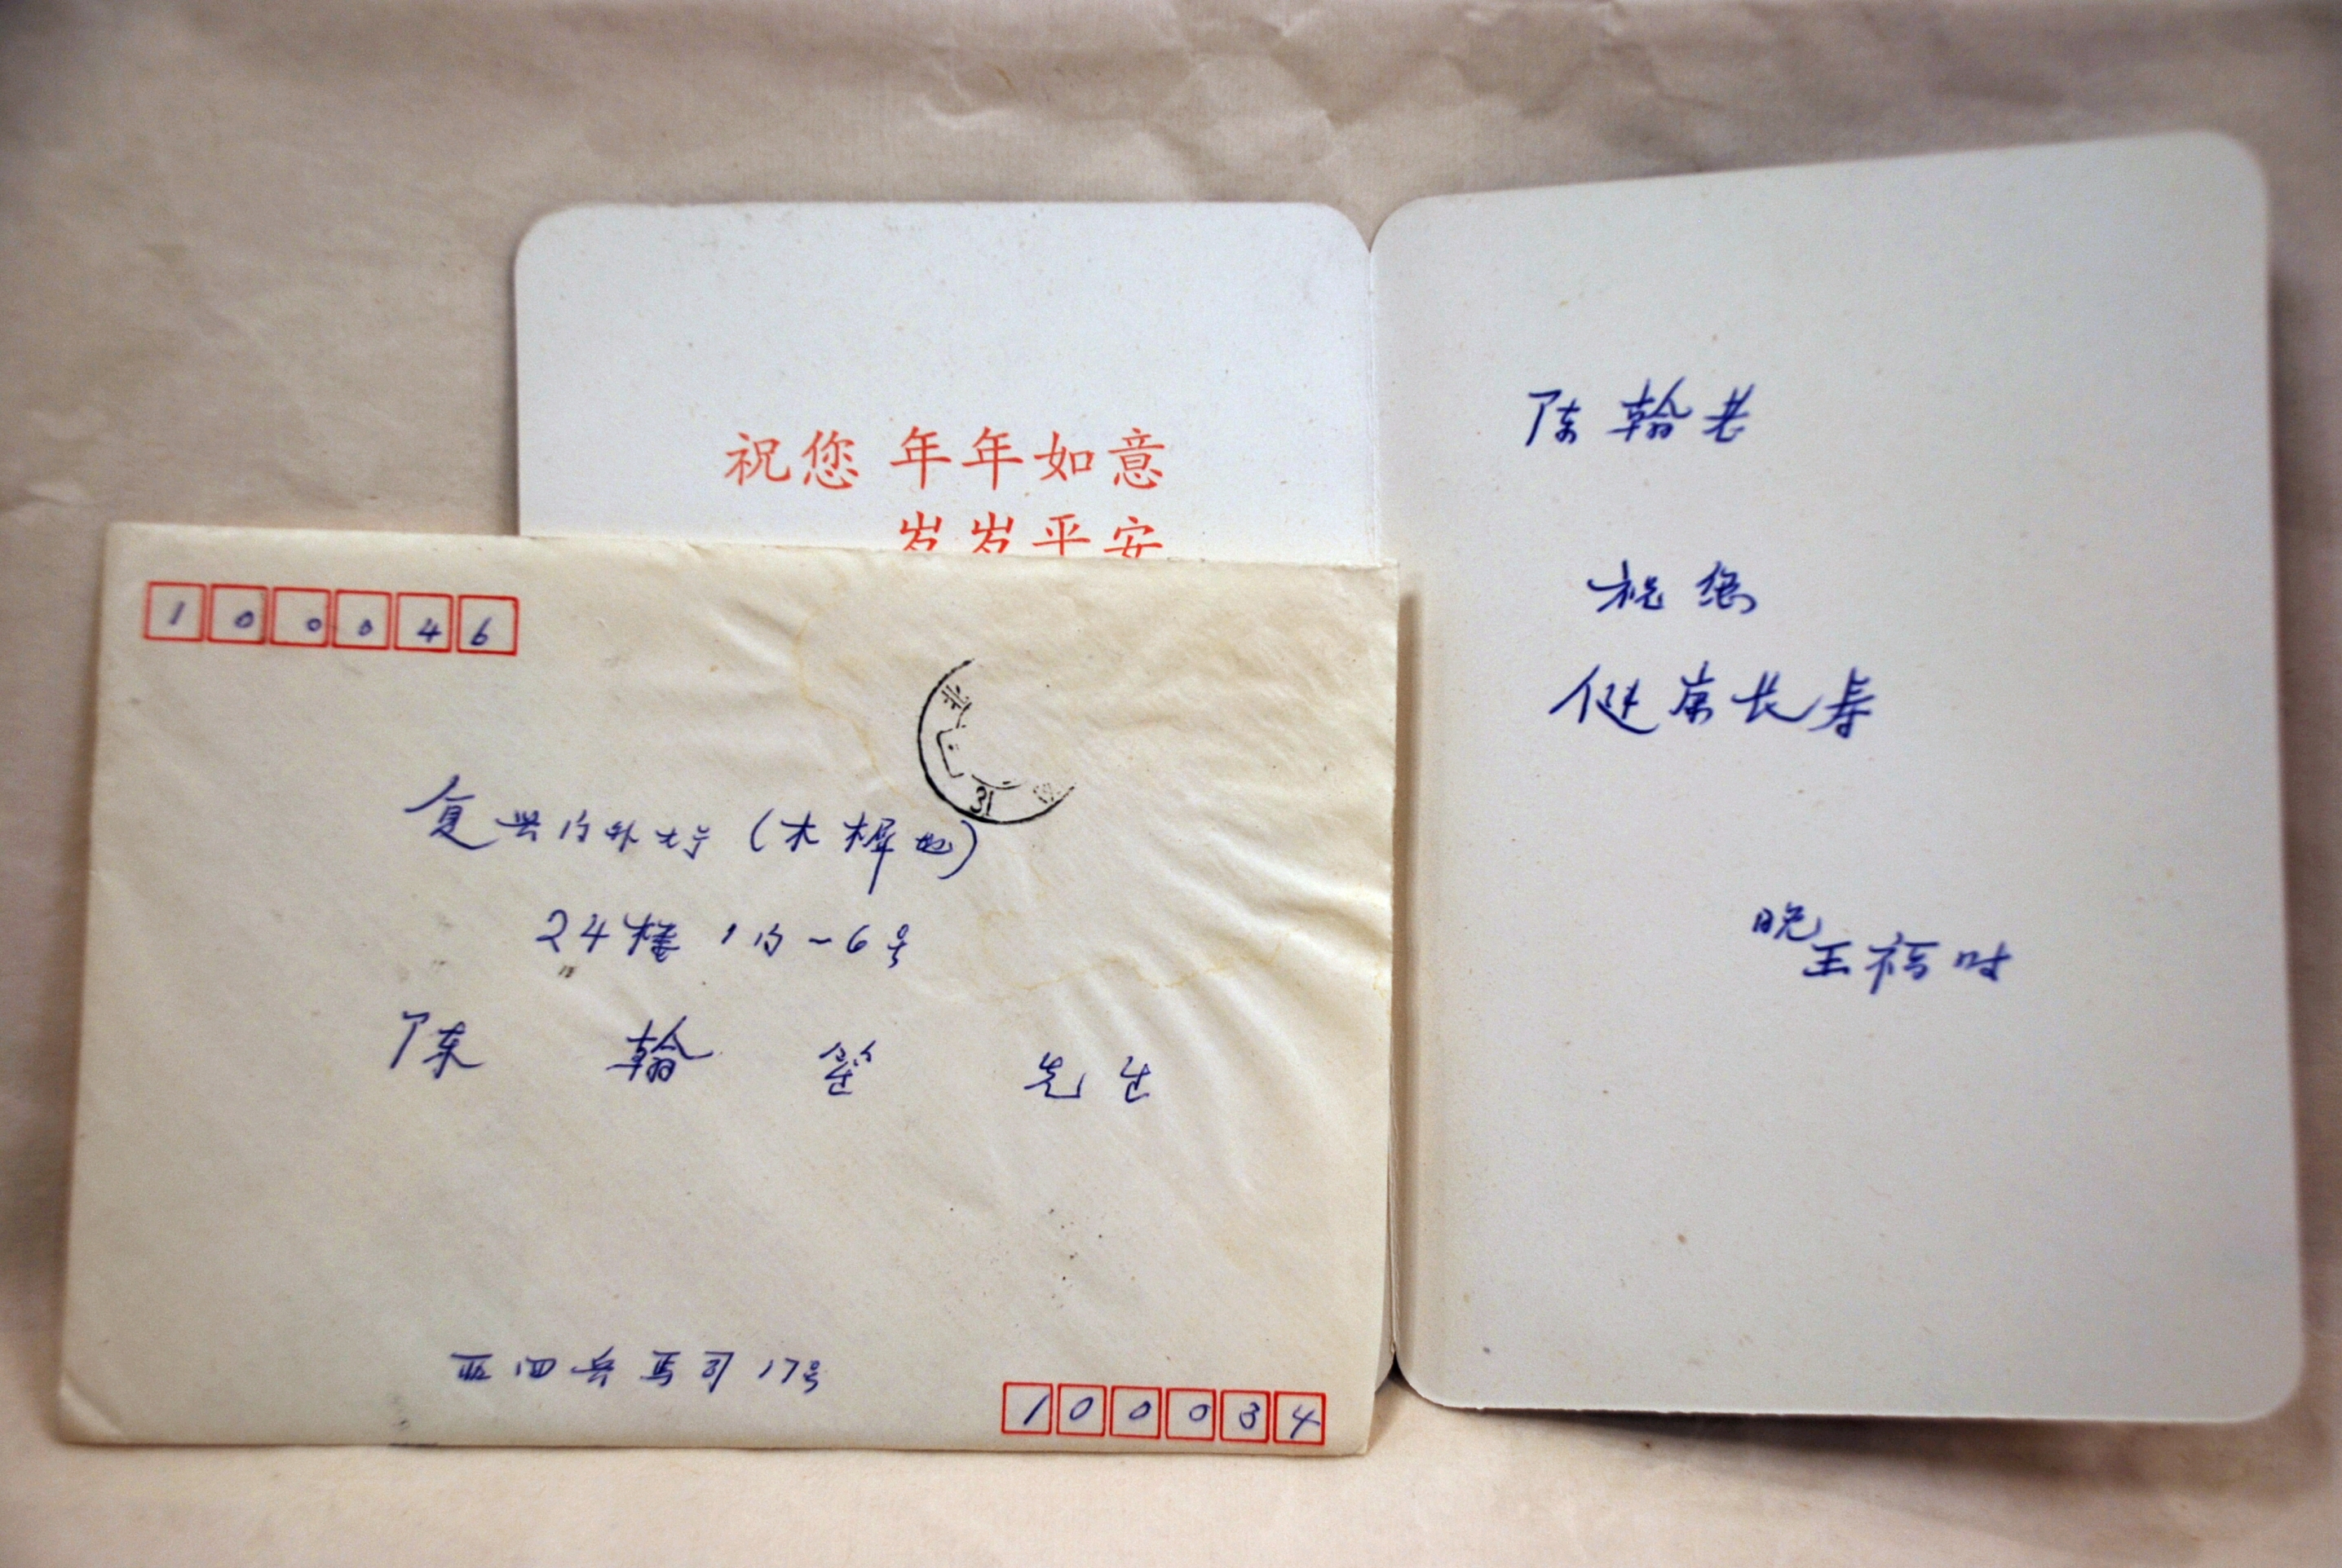 100046
复兴门外大街(木樨地)
24楼1门-6号
陈翰笙 先生
西四兵马司17号
100034
北
31
祝您 年年如意
岁岁平安
陈翰老
祝您
健康长寿
晚
王福时